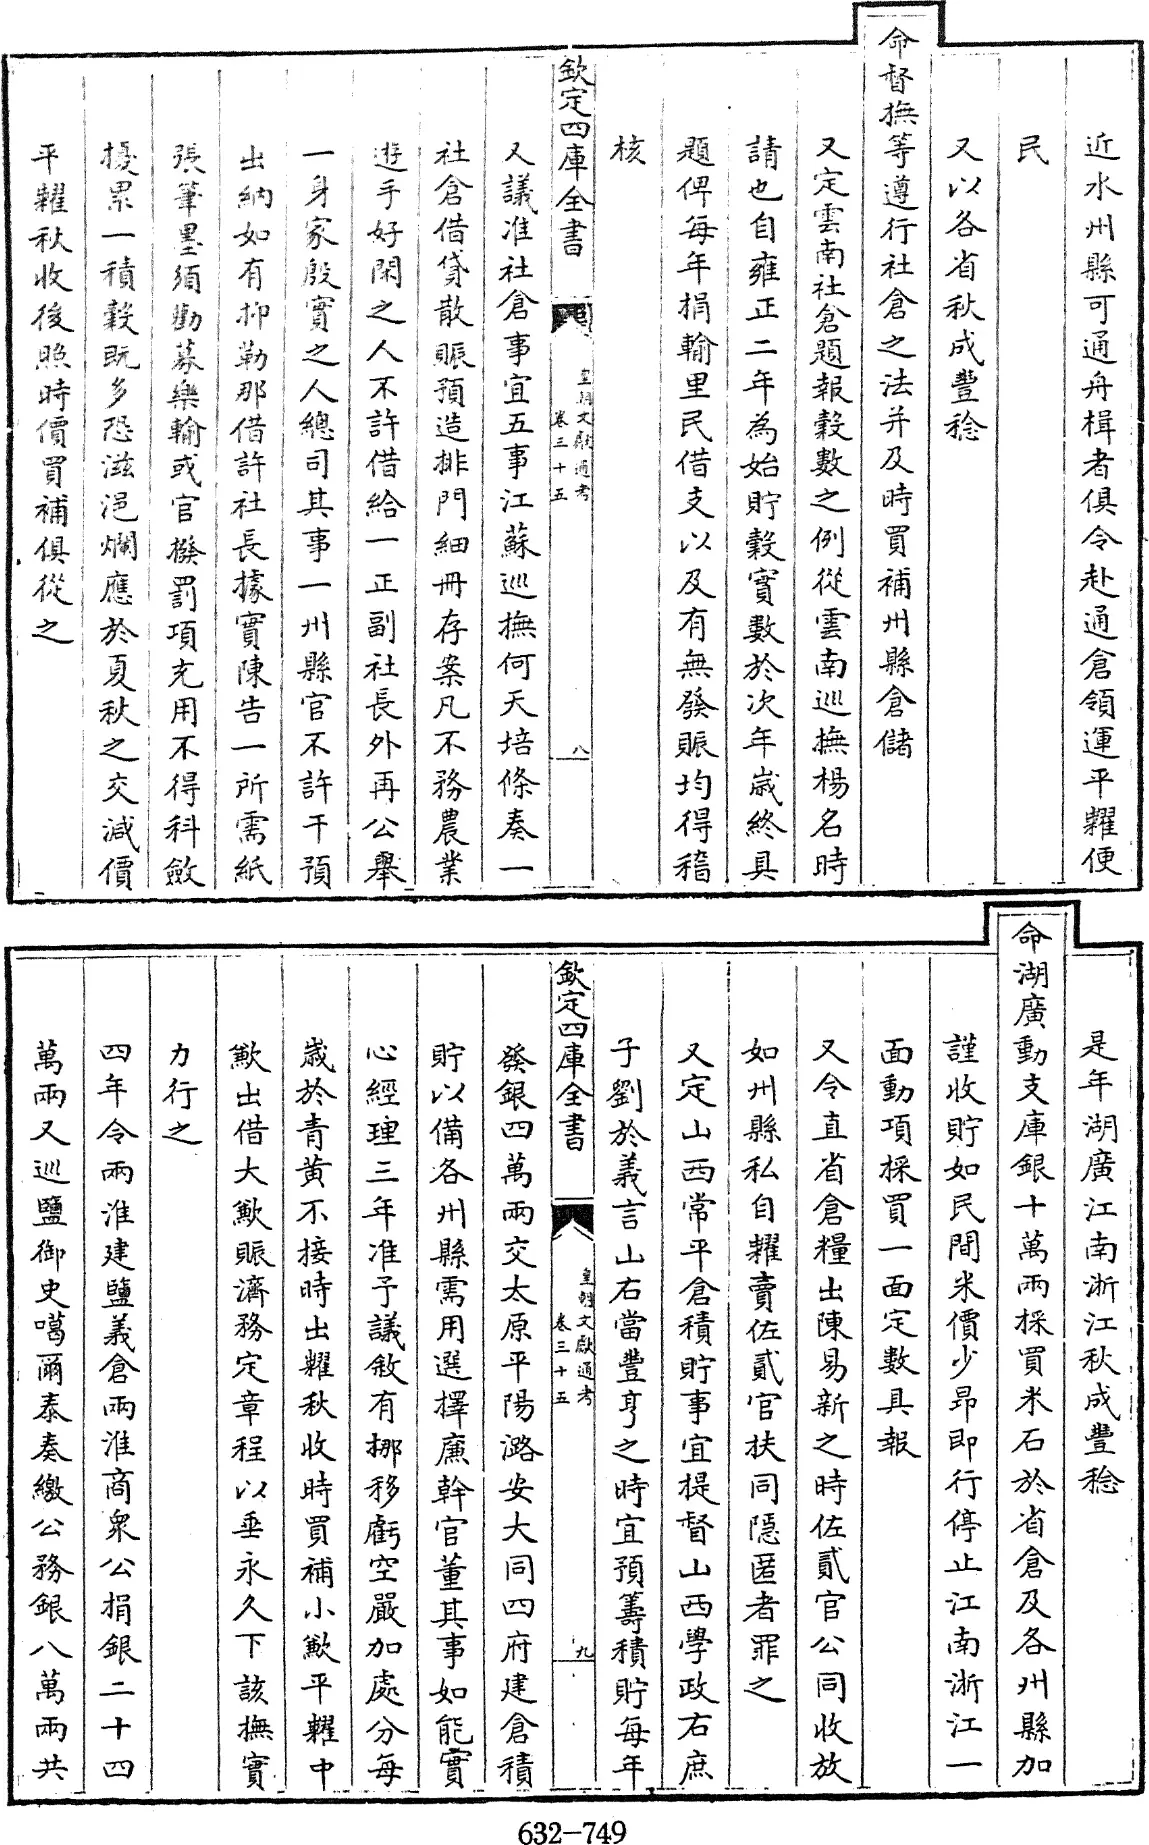 近水州縣可通舟楫者俱令赴通倉領運平糶便
民
又以各省秋成豐稔
命督撫等遵行社倉之法并及時買補州縣倉儲
又定雲南社倉題報穀數之例從雲南巡撫楊名時
請也自雍正二年為始貯穀實數於次年歲終具
題俾每年捐輸里民借支以及有無發賑均得稽
核
欽定四庫全書
皇朝文獻通考
卷三十五
八
又議准社倉事宜五事江蘇巡撫何天培條奏一
社倉借貸散賑預造排門細冊存案凡不務農業
遊手好閑之人不許借給一正副社長外再公舉
一身家殷實之人總司其事一州縣官不許干預
出納如有抑勒那借許社長據實陳告一所需紙
張筆墨須勸募樂輸或官撥罰項充用不得科斂
擾累一積穀既多恐滋浥爛應於夏秋之交減價
平糶秋收後照時價買補俱從之
是年湖廣江南浙江秋成豐稔
命湖廣動支庫銀十萬兩採買米石於省倉及各州縣加
謹收貯如民間米價少昂即行停止江南浙江一
面動項採買一面定數具報
又令直省倉糧出陳易新之時佐貳官公同收放
如州縣私自糶賣佐貳官扶同隱匿者罪之
又定山西常平倉積貯事宜提督山西學政右庶
子劉於義言山右當豐亨之時宜預籌積貯每年
欽定四庫全書
皇朝文獻通考
卷三十五
九
發銀四萬兩交太原平陽潞安大同四府建倉積
貯以備各州縣需用選擇廉幹官董其事如能實
心經理三年准予議敘有挪移虧空嚴加處分每
歲於青黃不接時出糶秋收時買補小歉平糶中
歉出借大歉賑濟務定章程以垂永久下該撫實
力行之
四年令兩淮建鹽義倉兩淮商衆公捐銀二十四
萬兩又巡鹽御史噶爾泰奏繳公務銀八萬兩共
632-749